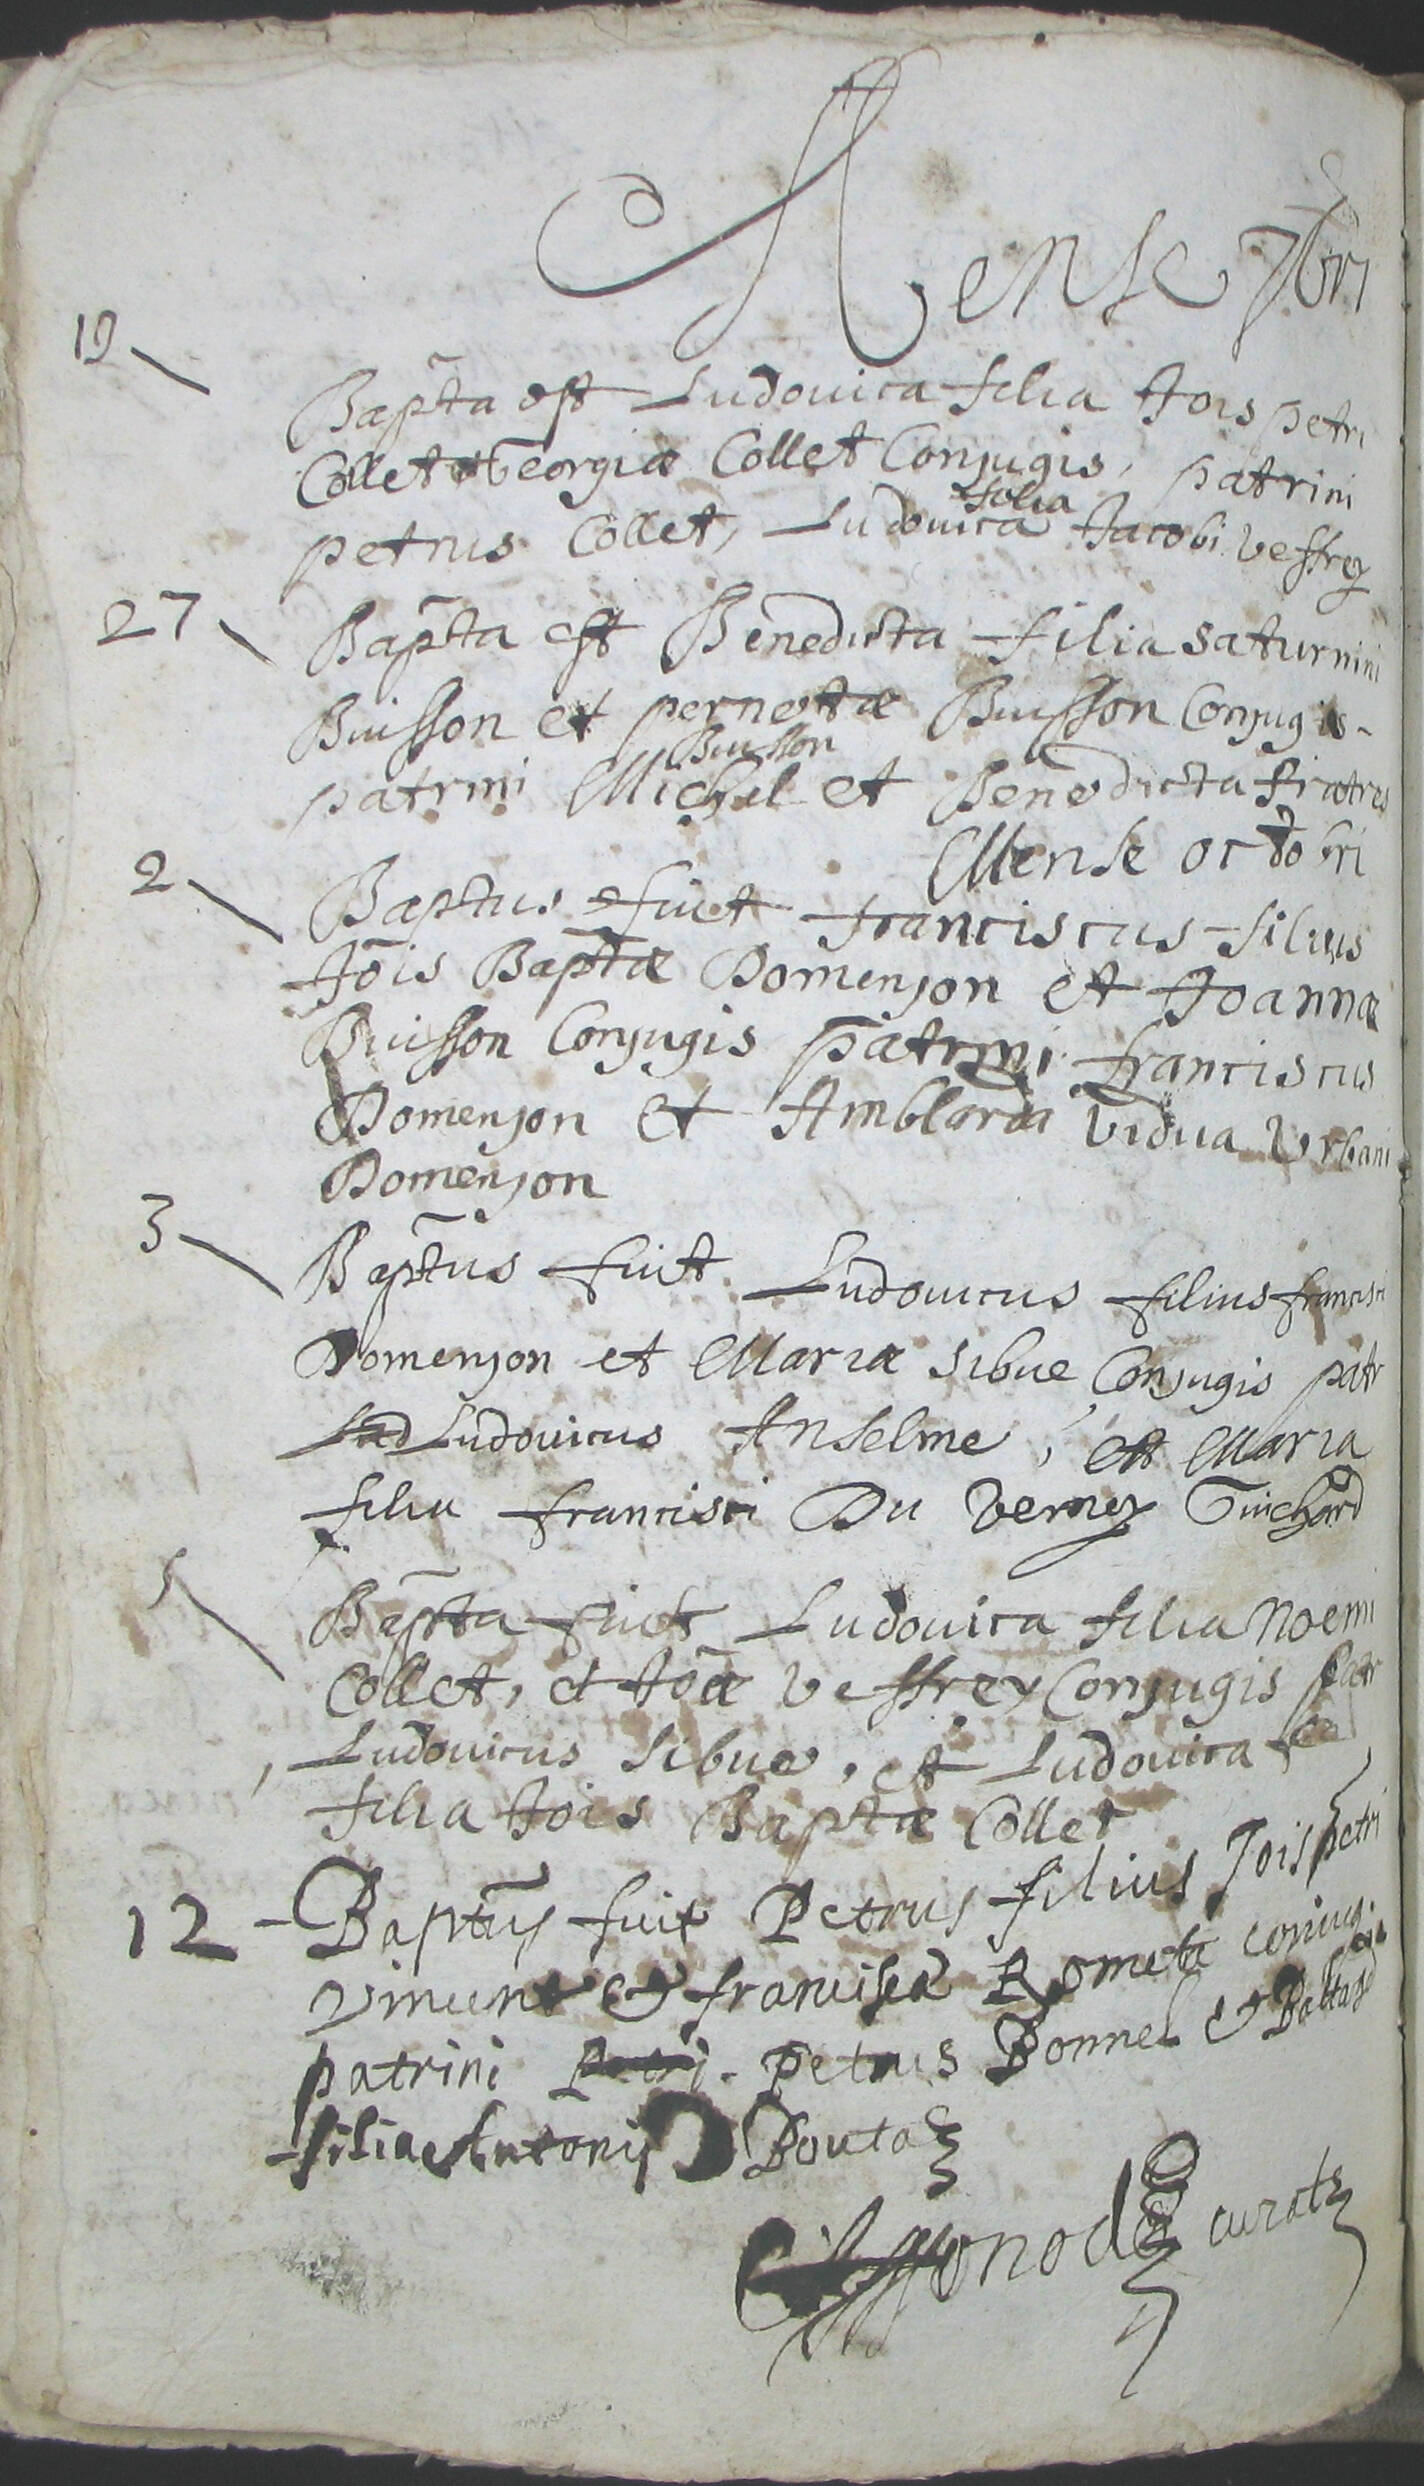 Mense 7bri
19
Bapta est Ludovica filia Jois petri
Collet et Georgiæ Collet Conjugis, patrini
petrus Collet, Ludovica filia Jacobi veffrey
27
Bapta est Benedicta filia saturnini
Buisson et pernetæ Buisson Conjugis
patrini Michel Buisson et Benedicta fratres
Mense octobri
2
Baptus fuit franciscus filius
Jois Baptæ Domenjon et Joannæ
Buisson Conjugis patrini franciscus
Domenjon et Amblarda vidua Urbani
Domenjon
3
Baptus fuit Ludovicus filius francisci
Domenjon et Mariæ sibue Conjugis patr
Ludovicus Anselme, et Maria
filia francisci Du verney Guichard
5
Bapta fuit Ludovica filia Noemi
Collet, et Joæ veffrey Conjugis patr
Ludovicus sibue, et Ludovica
filia Jois Baptæ Collet
12
Baptus fuit Petrus filius Jois petri
et franciscæ Rometa coniug.
patrini Petrus Bonnel &
filia Antonij
curatus